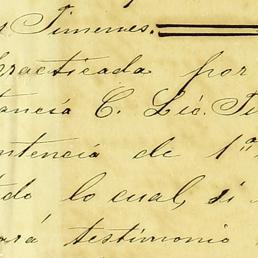 s Jimenes.
practicada por
tancia C. Lic. Ji
ntencia de 1ª
do lo cual, si
ará testimonio